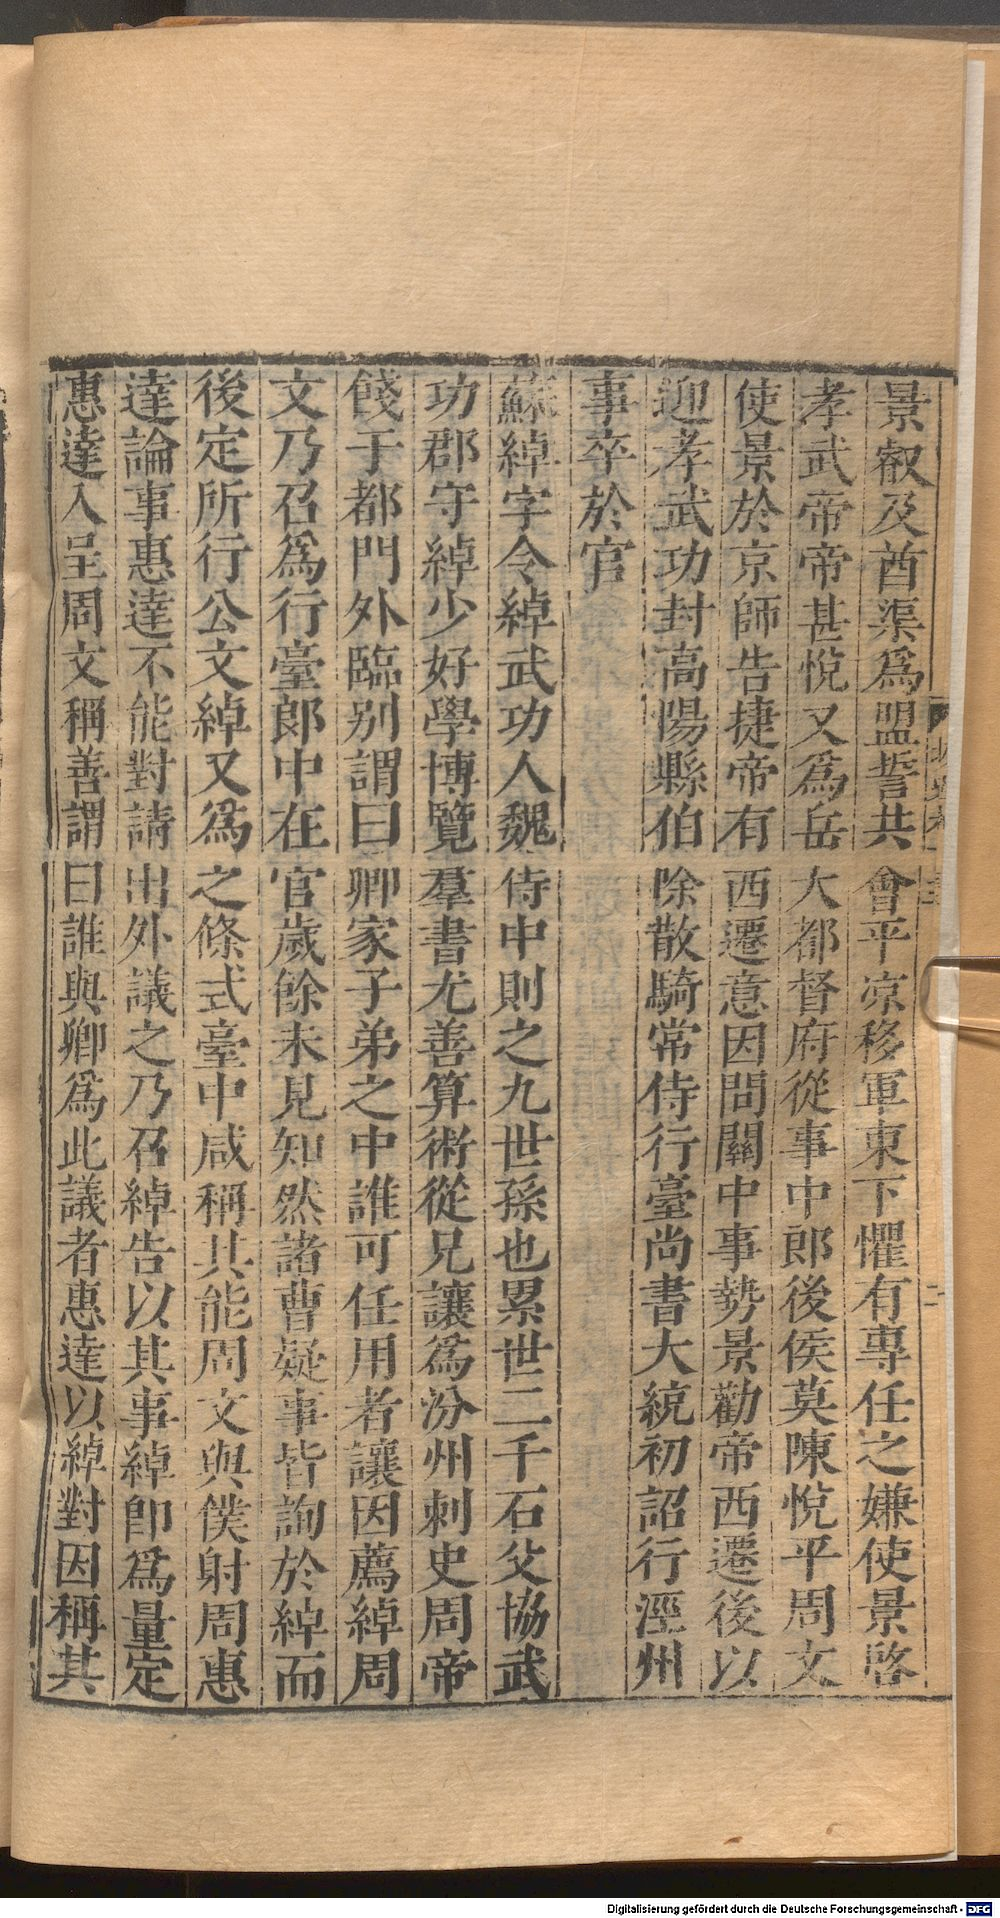 景叡及酋渠爲盟誓共會平涼移軍東下懼有專任之嫌使景啓
孝武帝帝甚悅又爲岳大都督府從事中郎後侯莫陳悅平周文
使景於京師告捷帝有西遷意因問關中事勢景勸帝西遷後以
迎孝武功封高陽縣伯除散騎常侍行臺尚書大統初詔行涇州
事卒於官
蘇綽字令綽武功人魏侍中則之九世孫也累世二千石父協武
功郡守綽少好學博覽羣書尤善算術從兄讓爲汾州刺史周帝
餞于都門外臨别謂曰卿家子弟之中誰可任用者讓因薦綽周
文乃召爲行臺郎中在官歲餘未見知然諸曹疑事皆詢於綽而
後定所行公文綽又爲之條式臺中咸稱其能周文與僕射周惠
達論事惠達不能對請出外議之乃召綽告以其事綽卽爲量定
惠達入呈周文稱善謂曰誰與卿爲此議者惠達以綽對因稱其
Digitalisierung gefördert durch die Deutsche Forschungsgemeinschaft - DFG